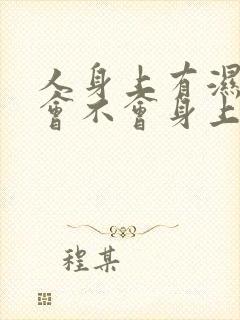 人身上有濕
會不會身上
程某